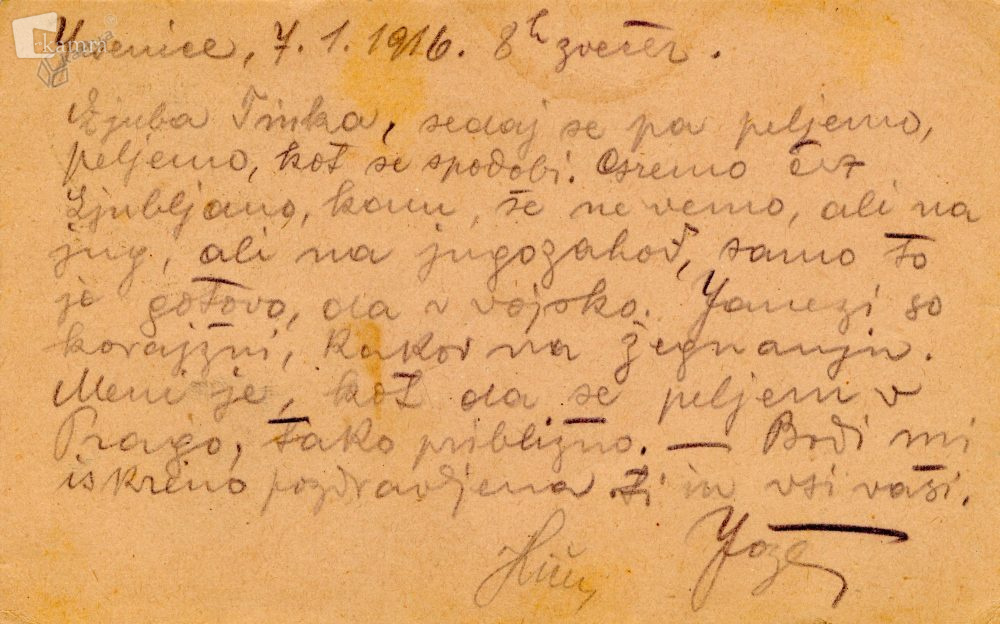 Jesenice, 7. 1. 1916. 8h zvečer.
Ljuba Tinka, sedaj se pa peljemo,
peljemo, kot se spodobi. Gremo čez
Ljubljano, kam, še ne vemo, ali na
jug, ali na jugozahod, samo to
je gotovo, da v vojsko. Janezi so
korajžni, kakor na žegnanju.
Meni je, kot da se peljem v
Prago, tako približno. — Bodi mi
iskreno pozdravljena ti in vsi vaši.
Jože
kamra